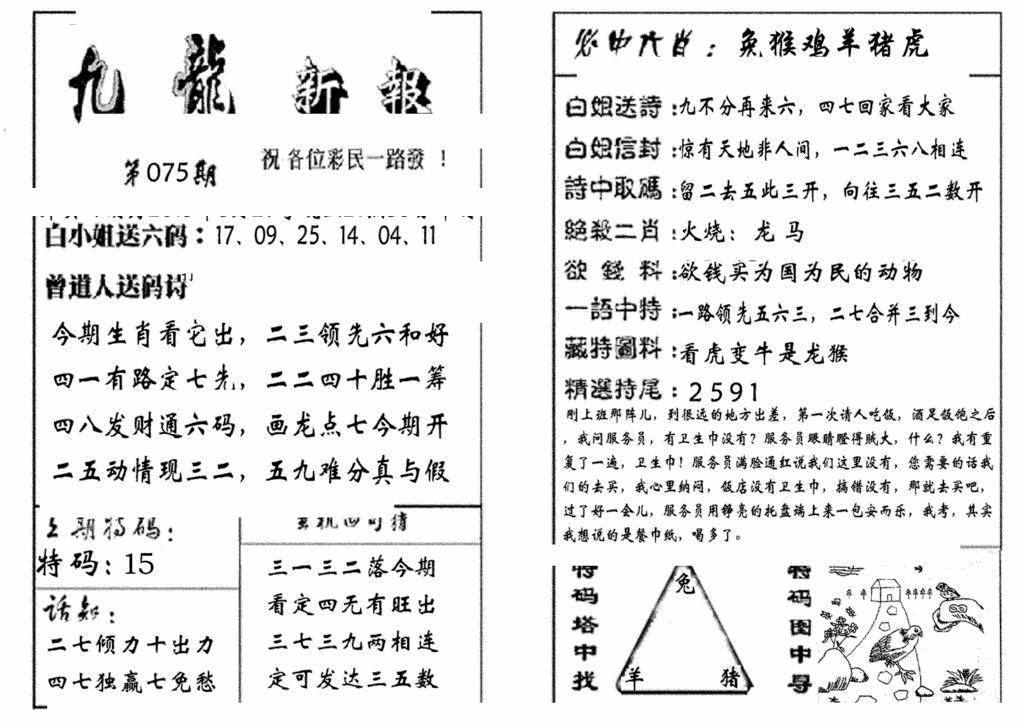 九龍新報
第075期
祝各位彩民一路發！
白小姐送六码：17、09、25、14、04、11
曾道人送码诗
今期生肖看它出，二三领先六和好
四一有路定七先，二二四十胜一筹
四八发财通六码，画龙点七今期开
二五动情现三二，五九难分真与假
上期特码：
特码：15
话知：
二七倾力十出力
四七独赢七免愁
玄机四句猜
三一三二落今期
看定四无有旺出
三七三九两相连
定可发达三五数
必中六肖：兔猴鸡羊猪虎
白姐送詩：九不分再来六，四七回家看大家
白姐信封：惊有天地非人间，一二三六八相连
詩中取碼：留二去五此三开，向往三五二数开
絕殺二肖：火烧：龙马
欲錢料：欲钱买为国为民的动物
一語中特：一路领先五六三，二七合并三到今
藏特圖料：看虎变牛是龙猴
精選特尾：2591
刚上班那阵儿，到很远的地方出差，第一次请人吃饭，酒足饭饱之后
，我问服务员，有卫生巾没有？服务员眼睛瞪得贼大，什么？我有重
复了一遍，卫生巾！服务员满脸通红说我们这里没有，您需要的话我
们的去买，我心里纳闷，饭店没有卫生巾，搞错没有，那就去买吧，
过了好一会儿，服务员用铮亮的托盘端上来一包安而乐，我考，其实
我想说的是餐巾纸，喝多了。
特码塔中找
兔
羊 猪
特码图中寻